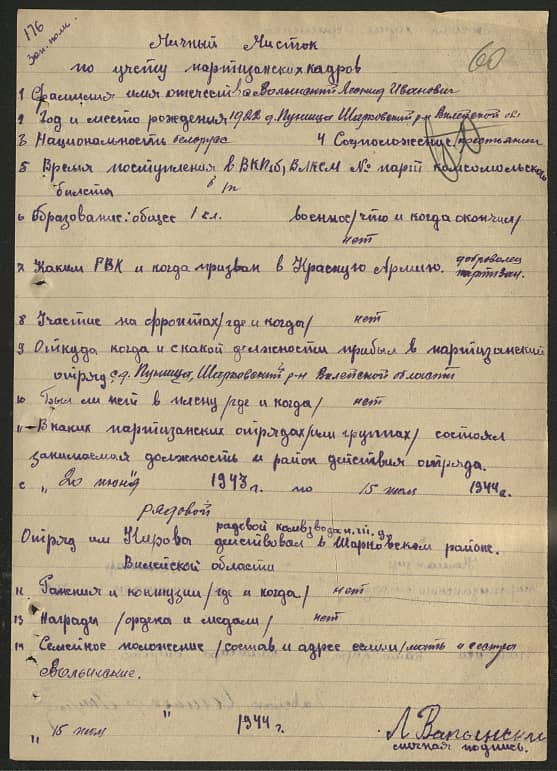 176
60
Личный Листок
по учету партизанских кадров
1 Фамилия имя отчество Волынский Леонид Иванович
2 Год и место рождения 1922 д. Пуница Шарковский р-н Вилейской обл
3 Национальность белорус 4 Соцположение крестьянин
5 Время поступления в ВКП/б/, ВЛКСМ № парт комсомольского
билета б/п
6 Образование: общее 1 кл. военное/что и когда окончил/
нет
7 Каким РВК и когда призван в Красную Армию. доброволец
партизан.
8 Участие на фронтах/где и когда/ нет
9 Откуда когда и с какой должности прибыл в партизанский
отряд с д. Пуница, Шарковский р-н Вилейской области
10 Был ли нет в плену/где и когда/ нет
11 В каких партизанских отрядах/или группах/ состоял
занимаемая должность и район действия отряда.
с „ 20 июня 1943 г. по 15 июл 1944 г.
рядовой
радевой комвзвода
Отряд им Кирова действовал в Шарковском районе.
Вилейской области
12 Ранения и контузии/где и когда/ нет
13 Награды /ордена и медали/ нет
14 Семейное положение /состав и адрес семьи/ мать и сестра
Волынские.
„ 15 июл " 1944 г.
личная подпись.